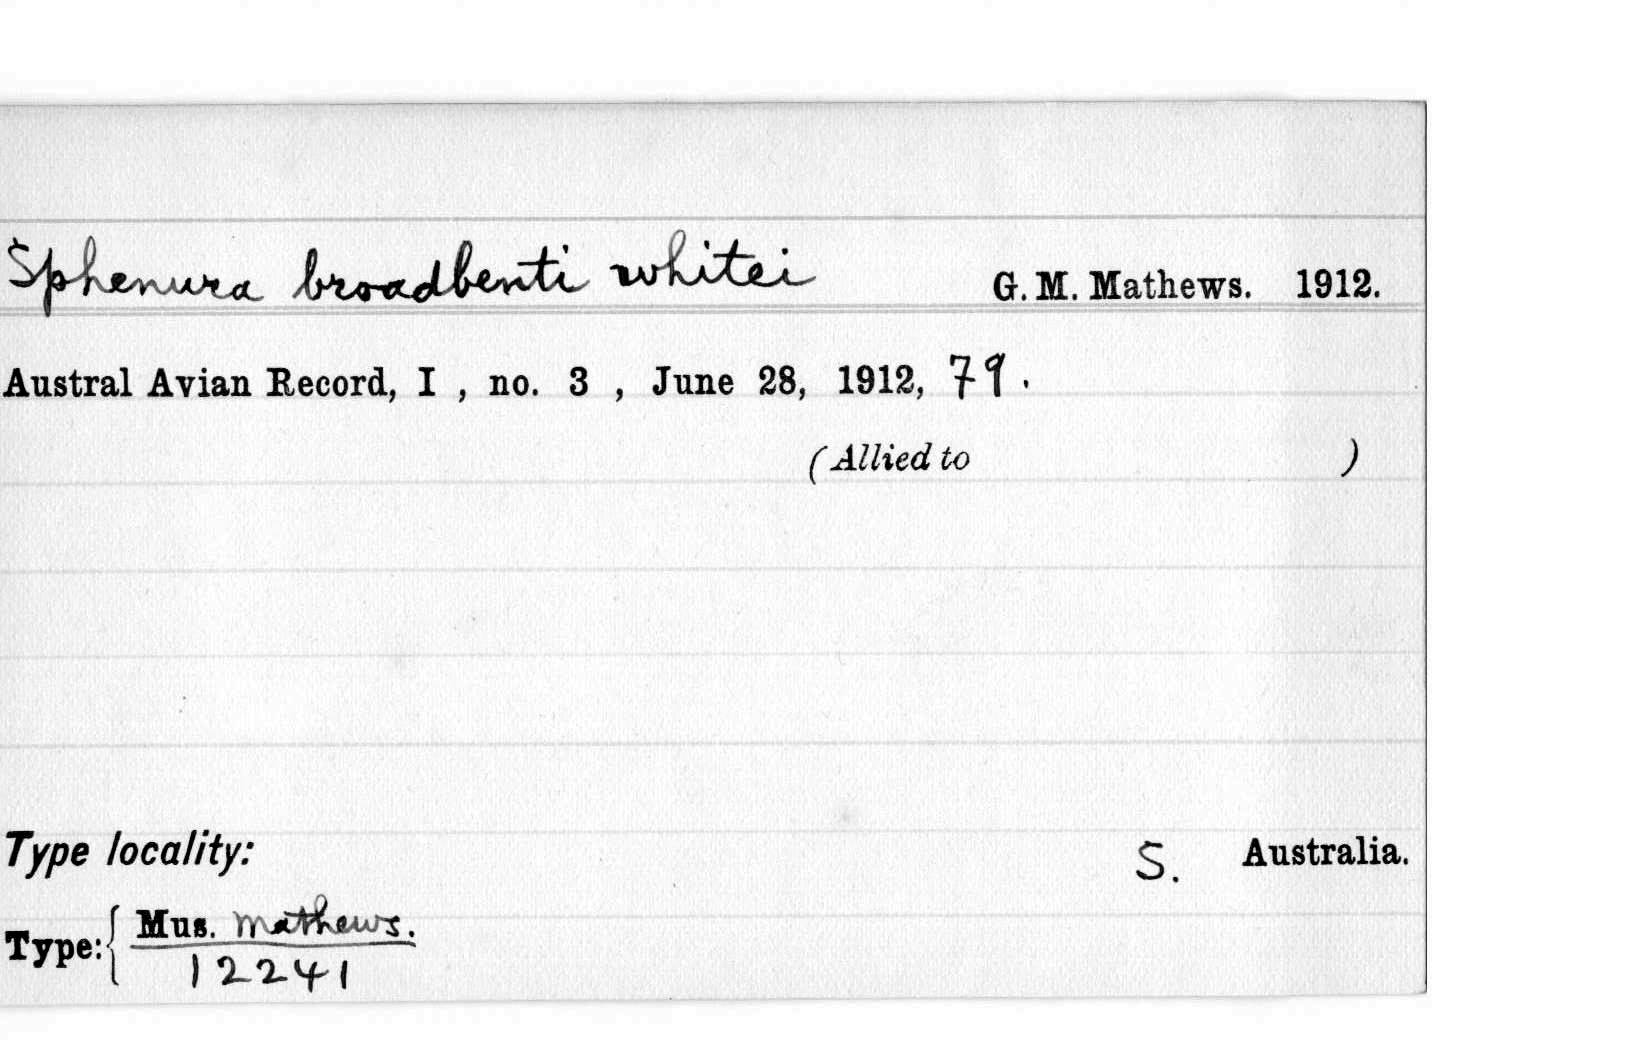 Sphenura broadbenti whitei G. M. Mathews. 1912.
Austral Avian Record, I , no. 3 , June 28, 1912, 79.
(Allied to )
Type locality: S. Australia.
Type: { Mus. Mathews.
12241